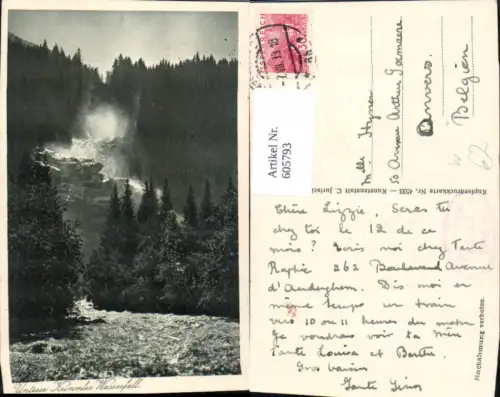 Unterer Krimmler Wasserfall.
Artikel Nr.
605793
Chère Lizzie, Seras tu
chez toi le 12 de ce
mois? Ecris moi chez Tante
262 Boulevard
d'Auderghem. Dis moi en
même temps un train
vers 10 ou 11 heures du matin
Je voudrais voir ta Mère
Tante Louisa et Berthe.
Gros baisers
Tante
Melle Hymen
50 Avenue Arthur Goemaere
Anvers.
Belgien
Kupferdruckkarte Nr. 4533 - Kunstanstalt C. Jurischek
Nachahmung verboten.
62